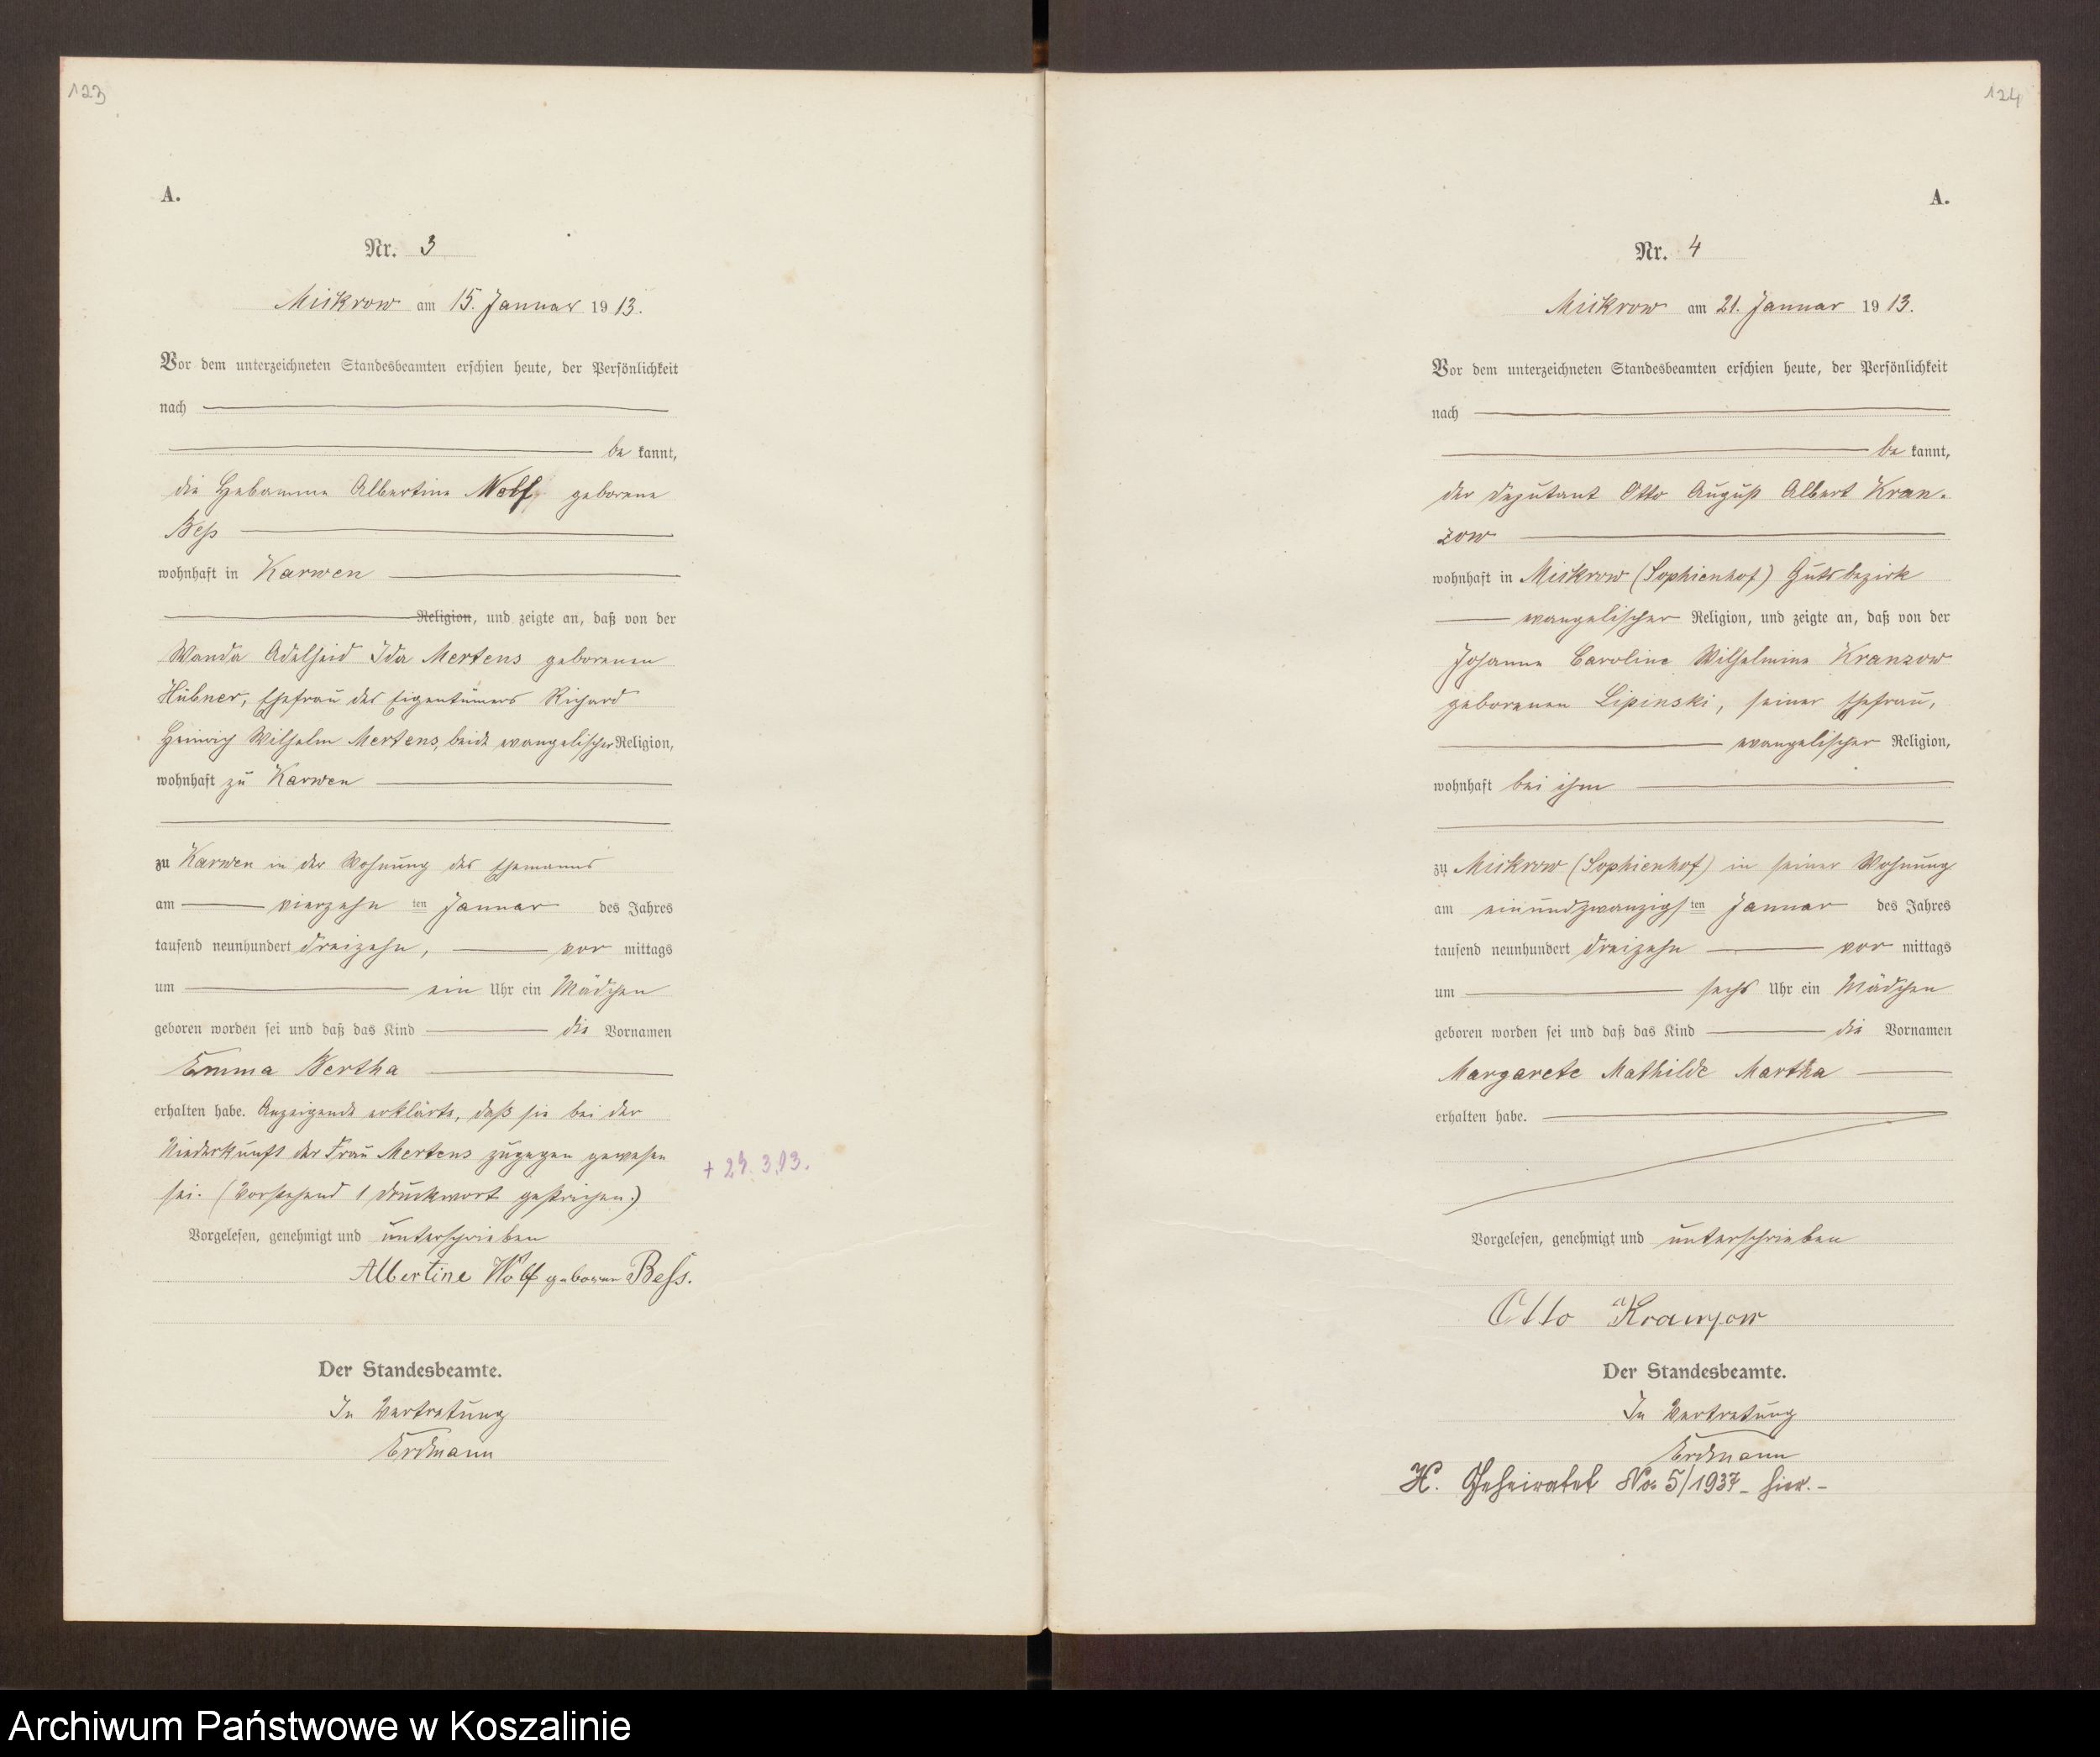 123
A.
Nr. 3
Mickrow am 15. Januar 1913.
Vor dem unterzeichneten Standesbeamten erschien heute, der Persönlichkeit
nach
be kannt,
die Hebamme Albertine Wolf geborene
Bess
wohnhaft in Karwen
Religion, und zeigte an, daß von der
Wanda Adelheid Ida Mertens geborenen
Hübner, Ehefrau des Eigentümers Richard
Heinrich Wilhelm Mertens, beide evangelischer Religion,
wohnhaft zu Karwen
zu Karwen in der Wohnung des Ehemanns
am vierzehn ten Januar des Jahres
tausend neunhundert dreizehn, vor mittags
um ein Uhr ein Mädchen
geboren worden sei und daß das Kind die Vornamen
Emma Bertha
erhalten habe. Anzeigende erklärte, daß sie bei der
Niederkunft der Frau Mertens zugegen gewesen
sei. (Vorstehend 1 Druckwort gestrichen.)
+ 3.13.
Vorgelesen, genehmigt und unterschrieben
Albertine Wolf geboren Bess.
Der Standesbeamte.
In Vertretung
Erdmann
124
A.
Nr. 4
Mickrow am 21. Januar 1913.
Vor dem unterzeichneten Standesbeamten erschien heute, der Persönlichkeit
nach
be kannt,
der Deputant Otto August Albert Kran-
zow
wohnhaft in Mickrow (Sophienhof) Gutsbezirk
evangelischer Religion, und zeigte an, daß von der
Johanne Caroline Wilhelmine Kranzow
geborenen Lipinski, seiner Ehefrau,
evangelischer Religion,
wohnhaft bei ihm
zu Mickrow (Sophienhof) in seiner Wohnung
am einundzwanzigsten Januar des Jahres
tausend neunhundert dreizehn vor mittags
um sechs Uhr ein Mädchen
geboren worden sei und daß das Kind die Vornamen
Margarete Mathilde Martha
erhalten habe.
Vorgelesen, genehmigt und unterschrieben
Otto Kranzow
Der Standesbeamte.
In Vertretung
Erdmann
H. Geheiratet No 5/1937 - hier. -
Archiwum Państwowe w Koszalinie